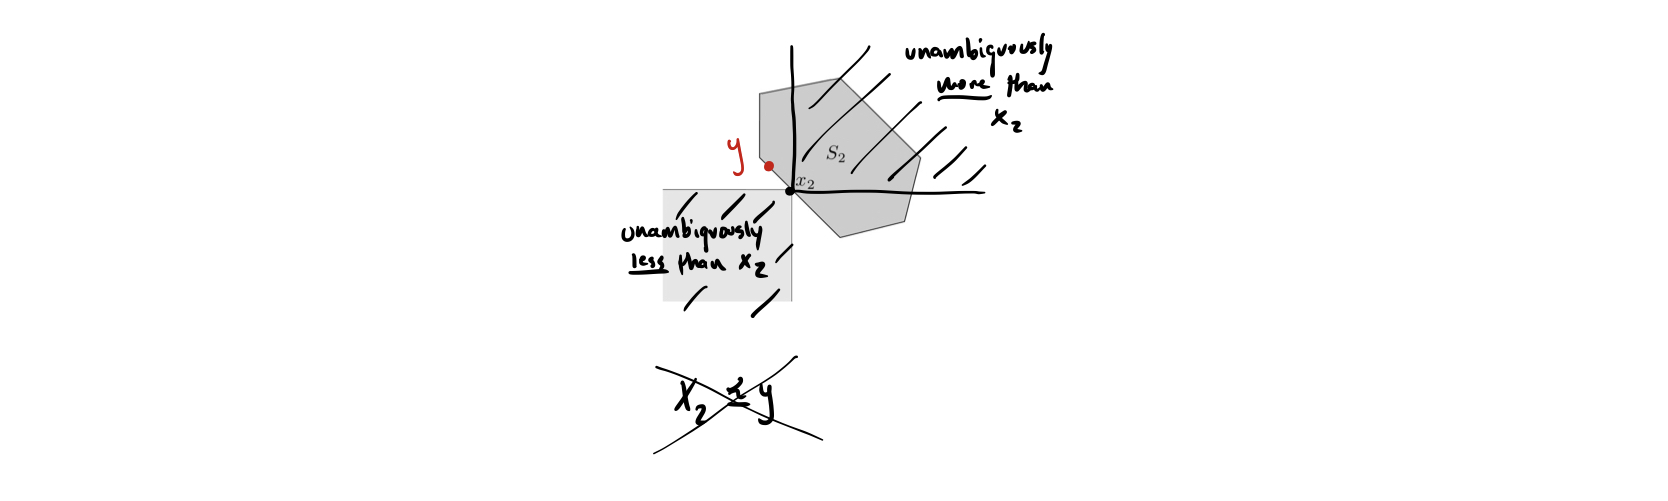 unambiguously
more than
x₂
y
S₂
x₂
unambiguously
less than x₂
x₂ ⪯ y